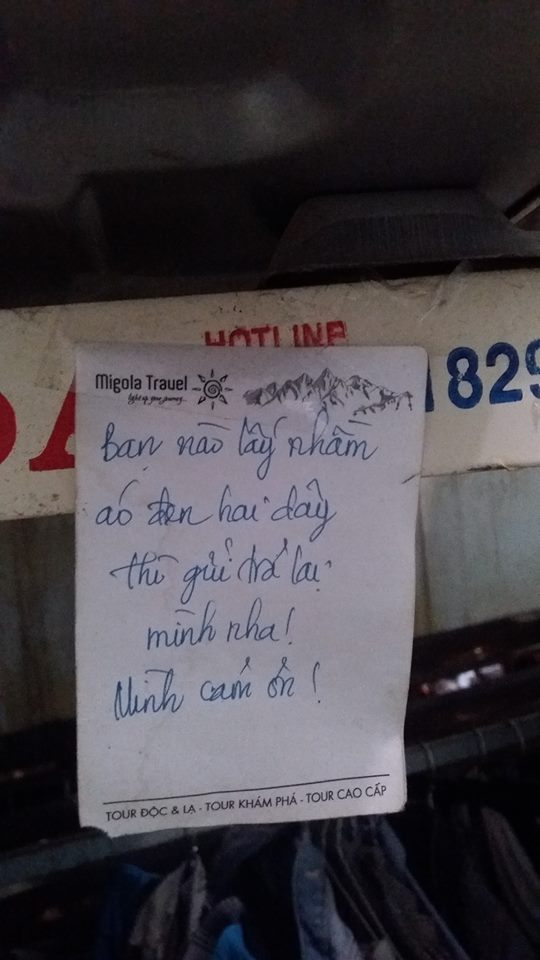 HOTLINE
1829
Migola Travel
light up your journey...
Bạn nào lấy nhầm
aó đen hai dây
thì gửi trả lại
mình nha!
Mình cảm ơn!
TOUR ĐỘC & LẠ - TOUR KHÁM PHÁ - TOUR CAO CẤP